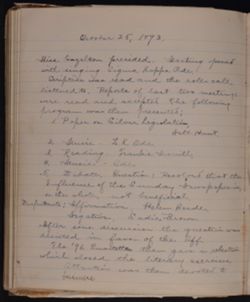 October 25, 1893.
Miss Hazelton presided. Meeting opened
with singing Sigma Kappa Ode.
Scripture was read and the roll call
listened to. Reports of last two meetings
were read and accepted. The following
program was then presented:
1. Paper on Silver Legislation
Hunt.
2. Music - Z.K. Ode
3. Reading.
4. Music - Ode
5. Debate. Question: Resolved that the
Influence of the Sunday Newspaper is,
on the whole, not beneficial.
Disputants: Affirmative Helen
Negative Sadie Brown
After some discussion the question was
decided in favor of the Aff.
The '96 Quartette then gave a selection
which closed the literary exercises
Attention was then devoted to
business